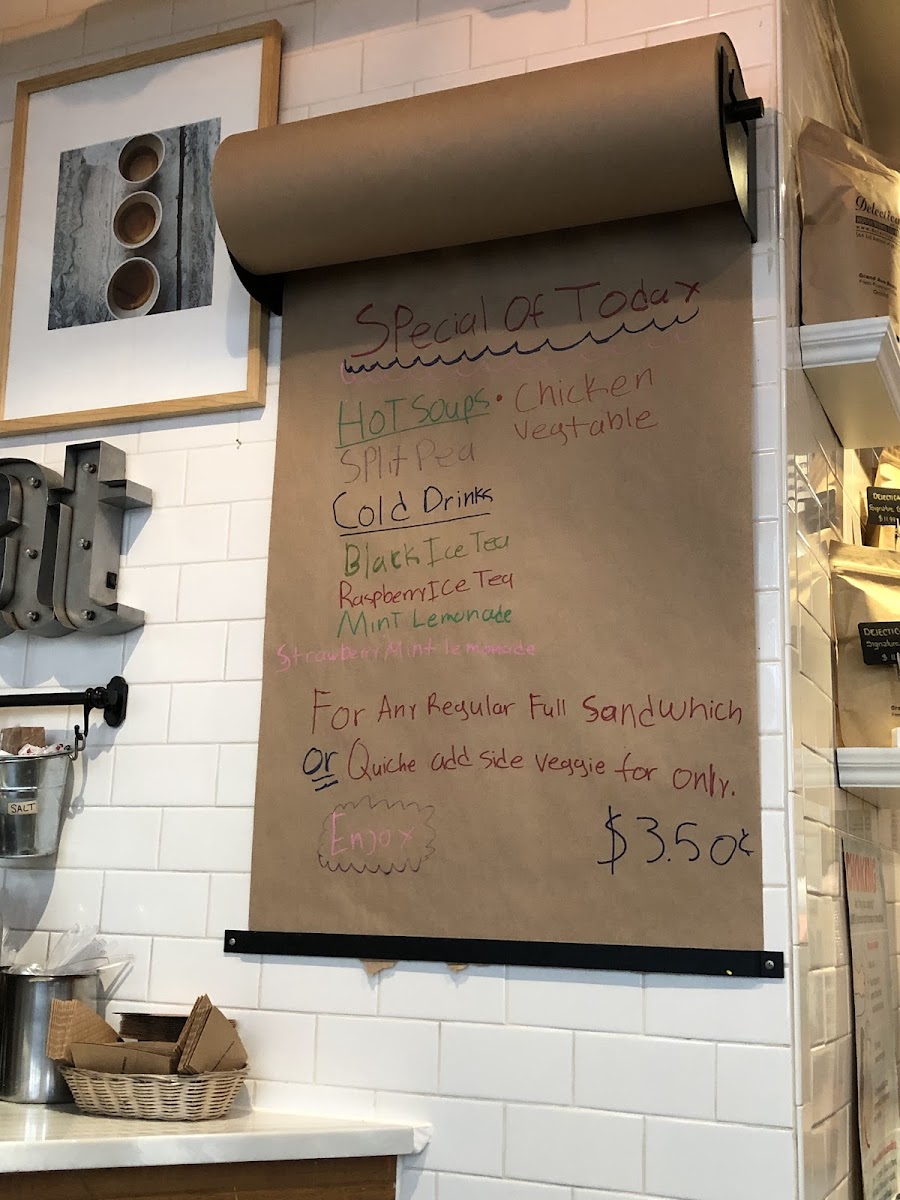 Special Of Today
Hot Soups • Chicken
Vegtable
Split Pea
Cold Drinks
Black Ice Tea
Raspberry Ice Tea
Mint Lemonade
Strawberry Mint lemonade
For Any Regular Full Sandwhich
or Quiche add side veggie for only.
Enjoy
$3.50¢
SALT